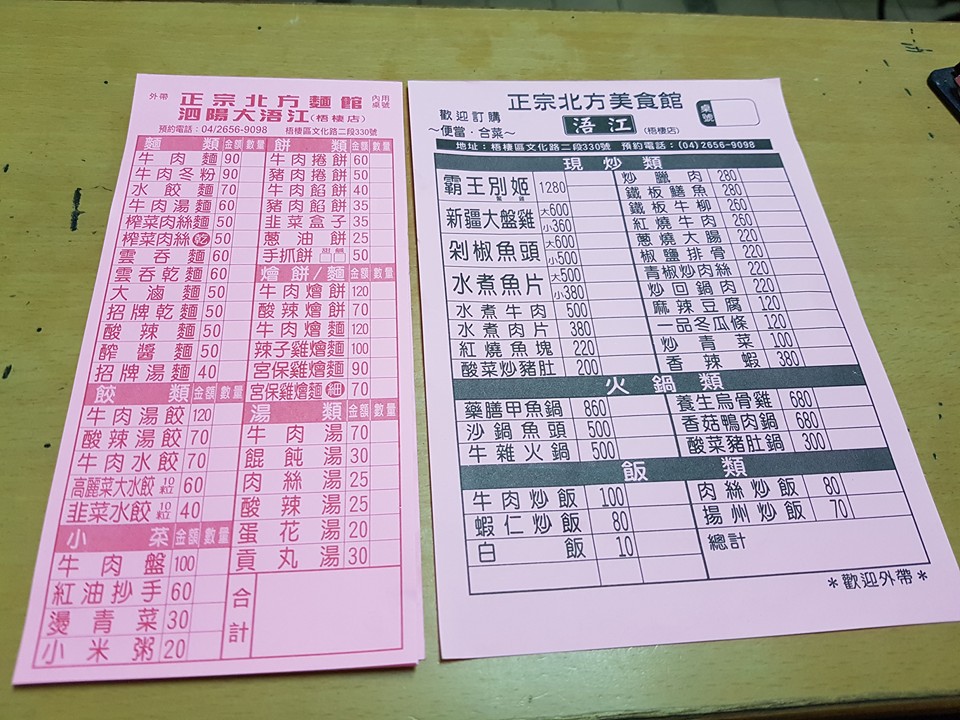 外帶
正宗北方麵館
內用
桌號
泗陽大浯江(梧棲店)
預約電話：04/2656-9098 梧棲區文化路二段330號
麵類 金額 數量
牛肉麵 90
牛肉冬粉 90
水餃麵 70
牛肉湯麵 60
榨菜肉絲麵 50
榨菜肉絲乾 50
雲吞麵 60
雲吞乾麵 60
大滷麵 50
招牌乾麵 50
酸辣麵 50
醡醬麵 50
招牌湯麵 40
餃類 金額 數量
牛肉湯餃 120
酸辣湯餃 70
牛肉水餃 70
高麗菜大水餃 10粒 60
韭菜水餃 10粒 40
小菜 金額 數量
牛肉盤 100
紅油抄手 60
燙青菜 30
小米粥 20
餅類 金額 數量
牛肉捲餅 60
豬肉捲餅 50
牛肉餡餅 40
豬肉餡餅 35
韭菜盒子 35
蔥油餅 25
手抓餅 甜 鹹 50
燴餅/麵 金額 數量
牛肉燴餅 120
酸辣燴餅 70
牛肉燴麵 120
辣子雞燴麵 100
宮保雞燴麵 90
宮保雞燴麵 細 70
湯類 金額 數量
牛肉湯 70
餛飩湯 30
肉絲湯 25
酸辣湯 25
蛋花湯 20
貢丸湯 30
合計
正宗北方美食館
桌號
歡迎訂購
～便當．合菜～
浯江 (梧棲店)
地址：梧棲區文化路二段330號 預約電話：(04)2656-9098
現炒類
霸王別姬 1280
新疆大盤雞 大600 小360
剁椒魚頭 大600 小500
水煮魚片 大500 小380
水煮牛肉 500
水煮肉片 380
紅燒魚塊 220
酸菜炒豬肚 200
炒臘肉 280
鐵板鱔魚 280
鐵板牛柳 260
紅燒牛肉 260
蔥燒大腸 220
椒鹽排骨 220
青椒炒肉絲 220
炒回鍋肉 220
麻辣豆腐 120
一品冬瓜條 120
炒青菜 100
香辣蝦 380
火鍋類
藥膳甲魚鍋 860
沙鍋魚頭 500
牛雜火鍋 500
養生烏骨雞 680
香菇鴨肉鍋 680
酸菜豬肚鍋 300
飯類
牛肉炒飯 100
蝦仁炒飯 80
白飯 10
肉絲炒飯 80
揚州炒飯 70
總計
＊歡迎外帶＊